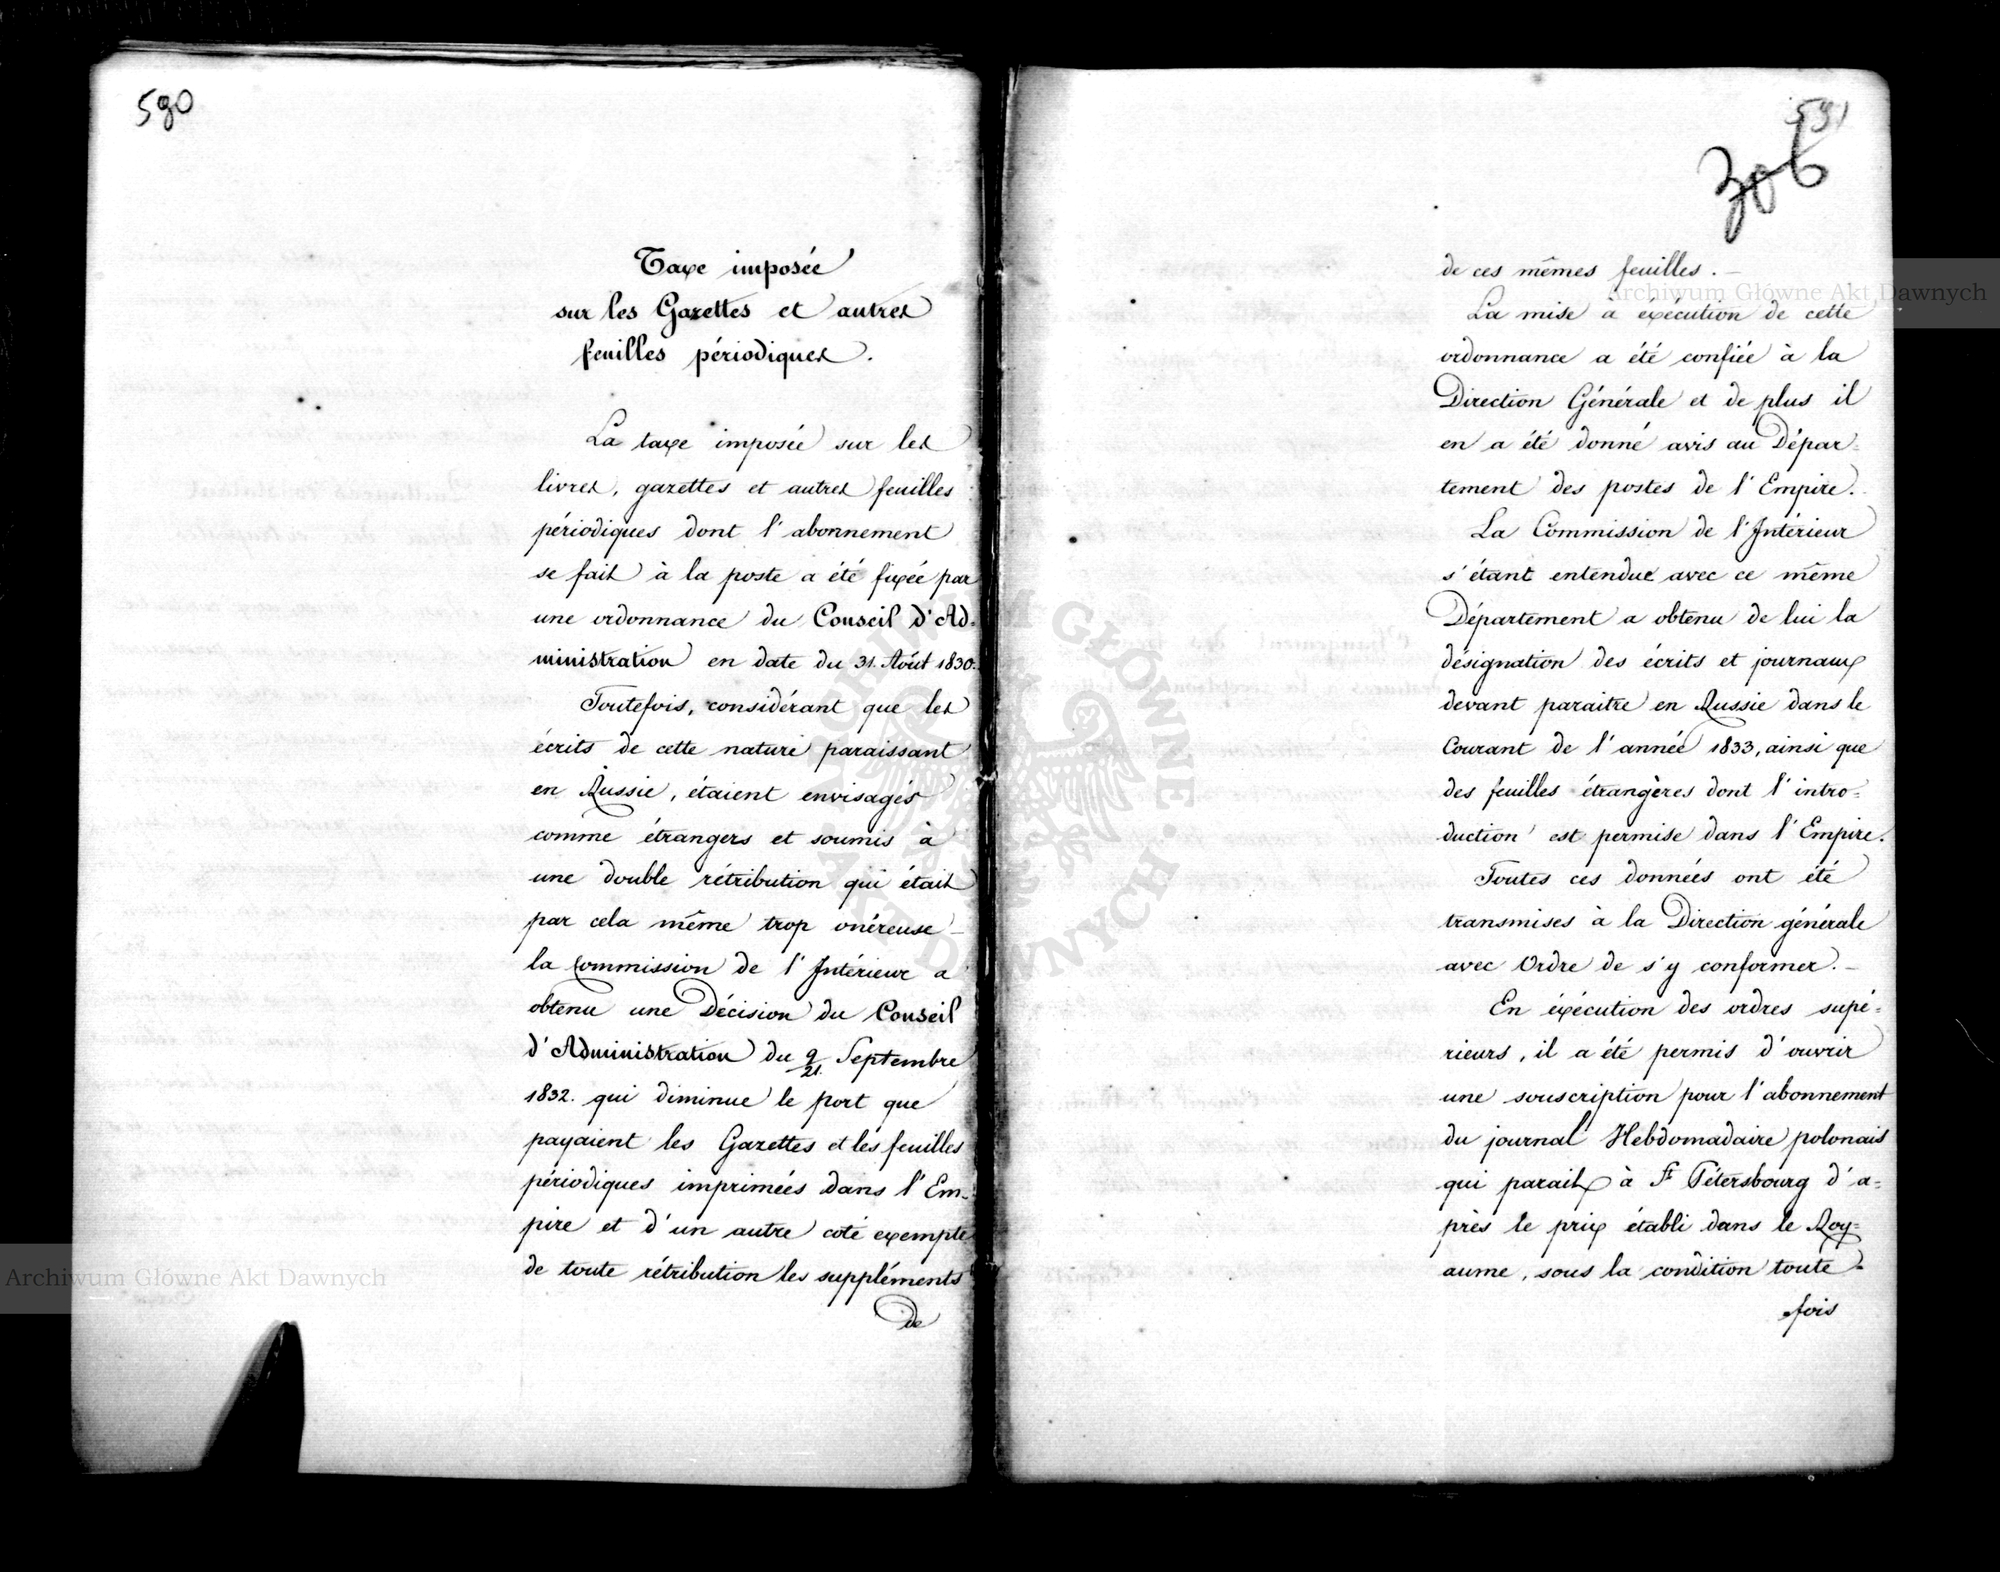 590
Taxe imposée
sur les Gazettes et autres
feuilles périodiques.
La taxe imposée sur les
livres, gazettes et autres feuilles
périodiques dont l'abonnement
se fait à la poste a été fixée par
une ordonnance du Conseil d'Ad-
ministration en date du 31. Août 1830.
Toutefois, considérant que les
écrits de cette nature paraissant
en Russie, étaient envisagés
comme étrangers et soumis à
une double rétribution qui était
par cela même trop onéreuse _
la Commission de l'Intérieur a
obtenu une Décision du Conseil
d'Administration du 9/21. Septembre
1832. qui diminue le port que
payaient les Gazettes et les feuilles
périodiques imprimées dans l'Em-
pire et d'un autre coté exempte
de toute rétribution les suppléments
de
591
306
de ces mêmes feuilles. _
La mise à exécution de cette
ordonnance a été confiée à la
Direction Générale et de plus il
en a été donné avis au Dépar=
tement des postes de l'Empire.
La Commission de l'Intérieur
s'étant entendue avec ce même
Département a obtenu de lui la
désignation des écrits et journaux
devant paraitre en Russie dans le
Courant de l'année 1833, ainsi que
des feuilles étrangères dont l'intro=
duction est permise dans l'Empire.
Toutes ces données ont été
transmises à la Direction générale
avec Ordre de s'y conformer. _
En éxécution des ordres supé=
rieurs, il a été permis d'ouvrir
une souscription pour l'abonnement
du journal Hebdomadaire polonais
qui parait à St Pétersbourg d'a=
près le prix établi dans le Roy=
aume, sous la condition toute=
fois
Archiwum Główne Akt Dawnych
Archiwum Główne Akt Dawnych
ARCHIWUM GŁÓWNE AKT DAWNYCH